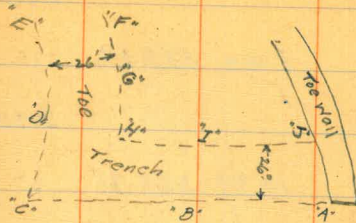 "E"
"F"
26'
"G"
Toe
"D"
"H"
"I"
"J"
Toe Wall
Trench
26'
"C"
"B"
"A"